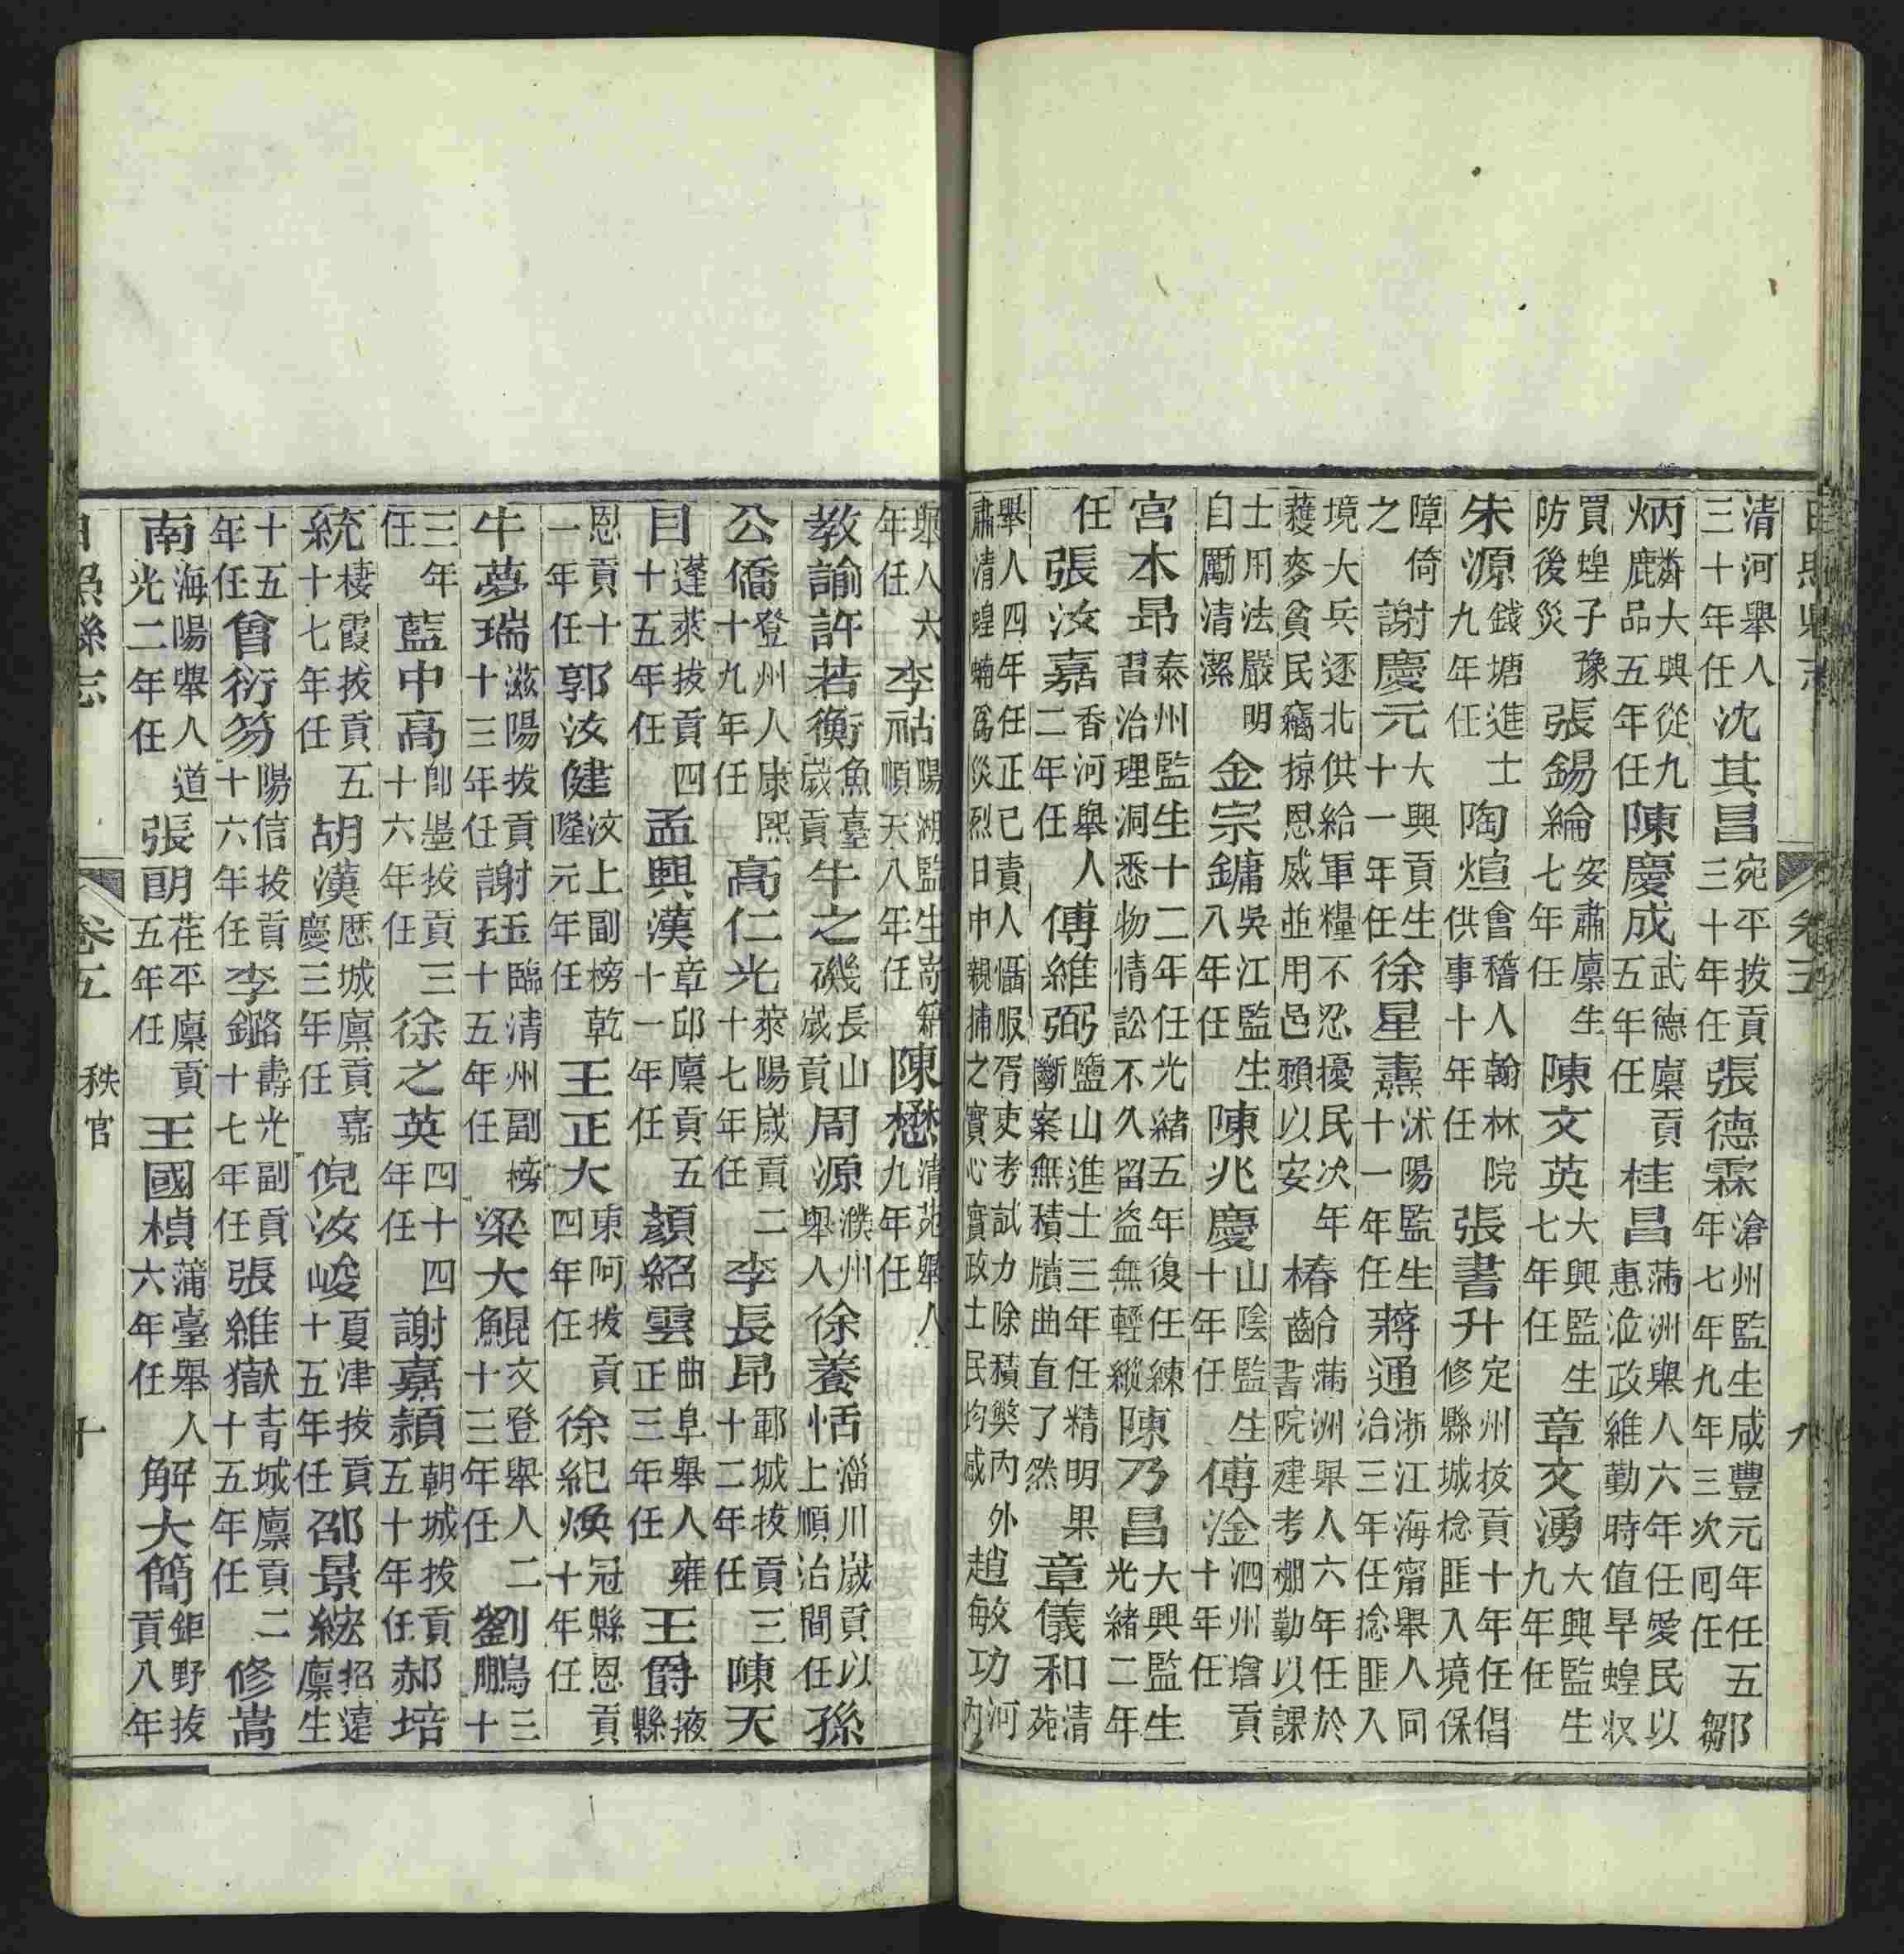 日照縣志 卷五 九
清河舉人三十年任 沈其昌 宛平拔貢三十年任 張德霖 滄州監生咸豐元年任五年七年九年三次囘任 鄒
炳麟 大興從九品五年任 陳慶成 武德廩貢五年任 桂昌 滿洲舉人六年任愛民以惠涖政維勤時值旱蝗収
買蝗子豫防後災 張錫綸 安肅廩生七年任 陳文英 大興監生七年任 章文湧 大興監生九年任
朱源 錢塘進士九年任 陶煊 會稽人翰林院供事十年任 張書升 定州拔貢十年任倡修縣城捻匪入境保
障倚之 謝慶元 大興貢生十一年任 徐星燾 沭陽監生十一年任 蔣通 浙江海甯舉人同治三年任捻匪入
境大兵逐北供給軍糧不忍擾民次年穫麥貧民竊掠恩威並用邑賴以安 椿齡 滿洲舉人六年任於書院建考棚勤以課
士用法嚴明自勵清潔 金宗鏞 吳江監生八年任 陳兆慶 山陰監生十年任 傅淦 泗州增貢十年任
宮本昻 泰州監生十二年任光緒五年復任練習治理洞悉物情訟不久留盜無輕縱 陳乃昌 大興監生光緒二年
任 張汝嘉 香河舉人二年任 傅維弼 鹽山進士三年任精明果斷案無積牘曲直了然 章儀和 清苑
舉人四年任正已責人懾服胥吏考試力除積獘內外肅清蝗蝻爲災烈日中親捕之實心實政士民均感 趙敏功 河內
舉人六年任 李祜 陽湖監生寄籍順天八年任 陳懋 清苑舉人九年任
教諭許若衡 魚臺歲貢 牛之磯 長山歲貢 周源 濮州舉人 徐養恬 淄川歲貢以上順治間任 孫
公僑 登州人康熙十九年任 高仁光 萊陽歲貢二十七年任 李長昻 鄆城拔貢三十二年任 陳天
目 蓬萊拔貢四十五年任 孟興漢 章邱廩貢五十一年任 顏紹雲 曲阜舉人雍正三年任 王爵 掖縣
恩貢十一年任 郭汝健 汶上副榜乾隆元年任 王正大 東阿拔貢四年任 徐紀煥 冠縣恩貢十年任
牛夢瑞 滋陽拔貢十三年任 謝玨 臨清州副榜十五年任 梁大鯤 文登舉人二十三年任 劉鵬 三十
三年任 藍中高 卽墨拔貢三十六年任 徐之英 四十四年任 謝嘉頴 朝城拔貢四五十年任 郝培
統 棲霞拔貢五十七年任 胡漢 歷城廩貢嘉慶三年任 倪汝峻 夏津拔貢十五年任 邵景綋 招遠廩生
十五年任 曾衍芴 陽信拔貢十六年任 李鏴 壽光副貢十七年任 張維嶽 青城廩貢二十五年任 修嵩
南 海陽舉人道光二年任 張朗 茌平廩貢五年任 王國楨 蒲臺舉人六年任 解大簡 鉅野拔貢八年
日照縣志 卷五 秩官 十